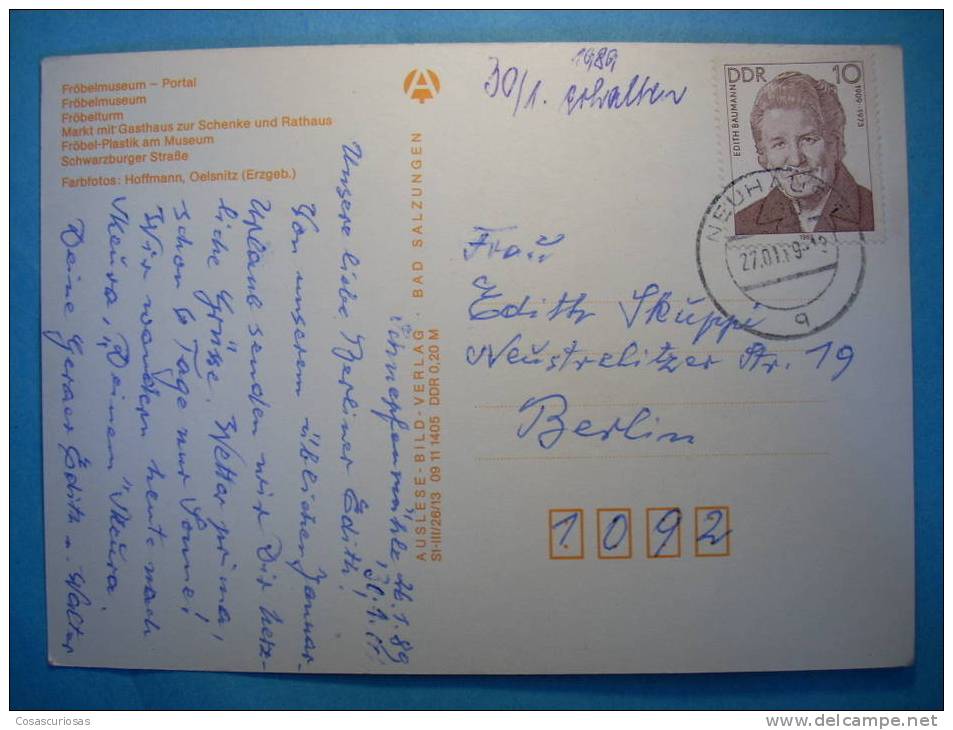 Fröbelmuseum – Portal
Fröbelmuseum
Fröbelturm
Markt mit Gasthaus zur Schenke und Rathaus
Fröbel-Plastik am Museum
Schwarzburger Straße
Farbfotos: Hoffmann, Oelsnitz (Erzgeb.)
A
AUSLESE-BILD-VERLAG · BAD SALZUNGEN
SI-III/26/13 09 11 1405 DDR 0,20 M
1989
30/1. erhalten
DDR 10
EDITH BAUMANN
1909-1973
NEUHAUS
27.01.89
a
26.1.89
Unsere liebe Berliner Edith!
Von unserem üblichen Januar-
Urlaub senden wir Dir herz-
liche Grüsse. Wetter prima,
schon 6 Tage nur Sonne!
Wir wandern heute nach
Skeura, „Deinem" Skeura.
Deine Geraer Edith u. Walter
Frau
Edith Skuppi
Neustrelitzer Str. 19
Berlin
1092
Cosascuriosas
www.delcampe.net